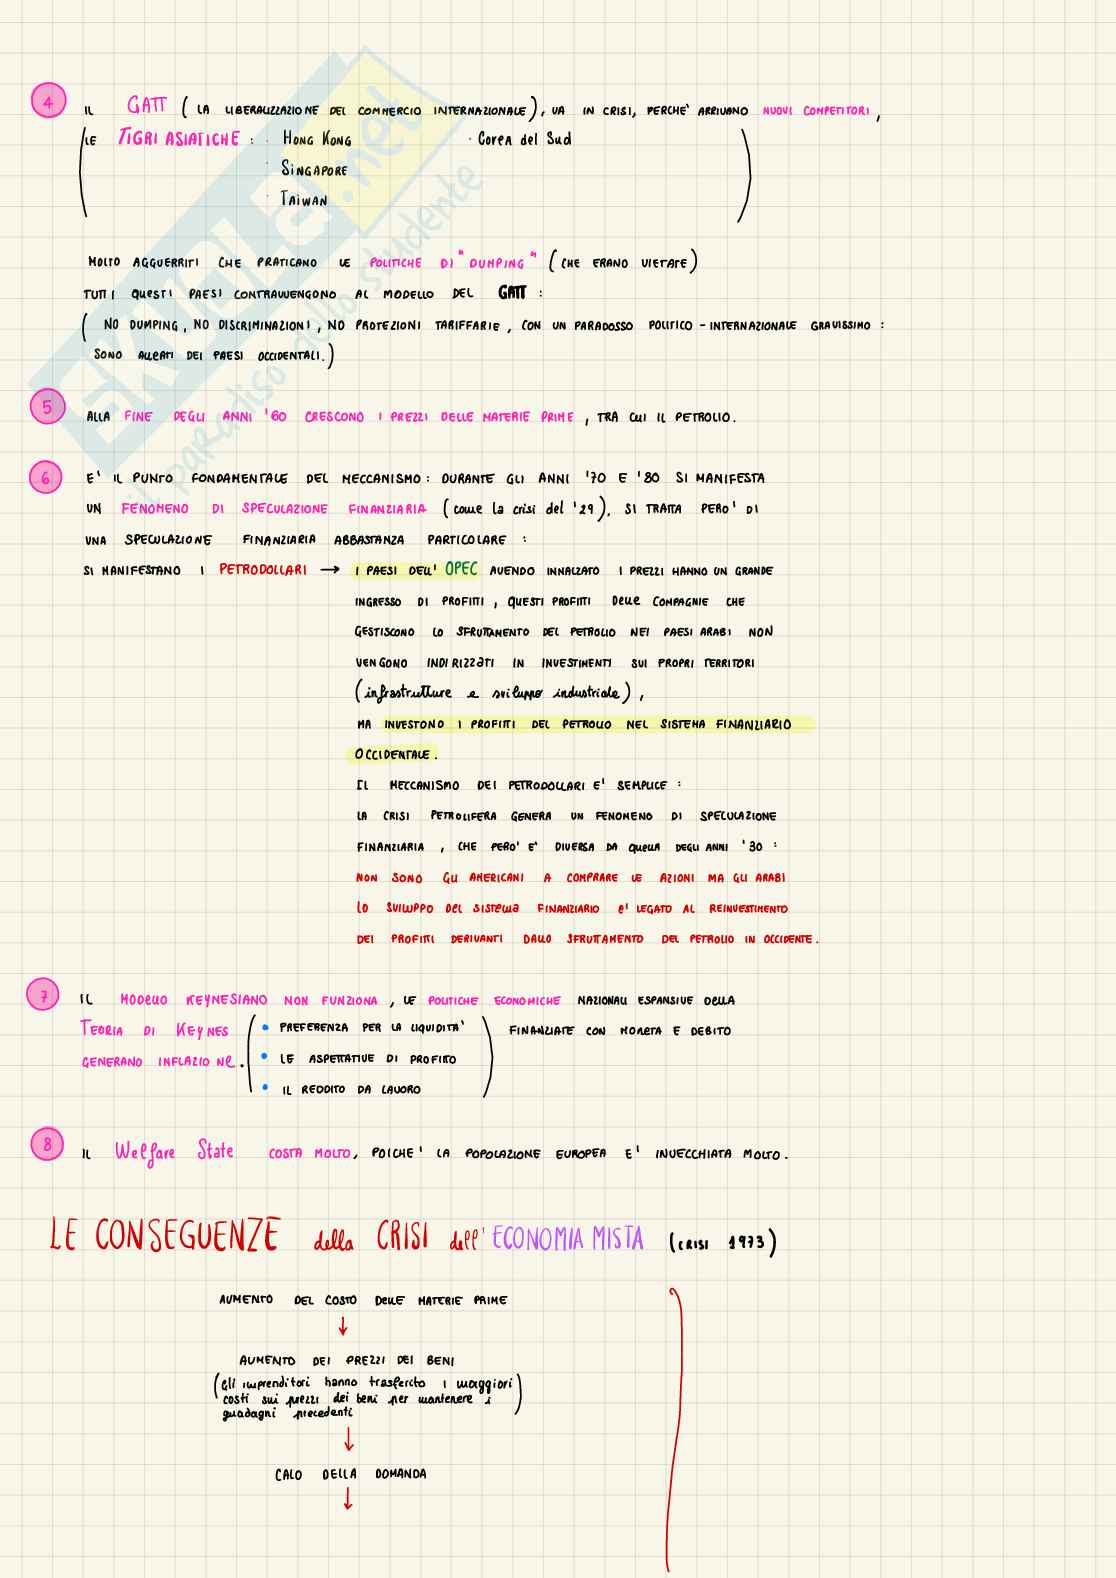 4 IL GATT (LA LIBERALIZZAZIONE DEL COMMERCIO INTERNAZIONALE), VA IN CRISI, PERCHE' ARRIVANO NUOVI COMPETITORI,
(LE TIGRI ASIATICHE : · HONG KONG · Corea del Sud
· SINGAPORE
· TAIWAN )
MOLTO AGGUERRITI CHE PRATICANO LE POLITICHE DI "DUMPING" (CHE ERANO VIETATE)
TUTTI QUESTI PAESI CONTRAVVENGONO AL MODELLO DEL GATT :
( NO DUMPING, NO DISCRIMINAZIONI, NO PROTEZIONI TARIFFARIE, CON UN PARADOSSO POLITICO - INTERNAZIONALE GRAVISSIMO :
SONO ALLEATI DEI PAESI OCCIDENTALI.)
5 ALLA FINE DEGLI ANNI '60 CRESCONO I PREZZI DELLE MATERIE PRIME, TRA CUI IL PETROLIO.
6 E' IL PUNTO FONDAMENTALE DEL MECCANISMO: DURANTE GLI ANNI '70 E '80 SI MANIFESTA
UN FENOMENO DI SPECULAZIONE FINANZIARIA (come la crisi del '29), SI TRATTA PERO' DI
UNA SPECULAZIONE FINANZIARIA ABBASTANZA PARTICOLARE :
SI MANIFESTANO I PETRODOLLARI → I PAESI DELL' OPEC AVENDO INNALZATO I PREZZI HANNO UN GRANDE
INGRESSO DI PROFITTI, QUESTI PROFITTI DELLE COMPAGNIE CHE
GESTISCONO LO SFRUTTAMENTO DEL PETROLIO NEI PAESI ARABI NON
VENGONO INDIRIZZATI IN INVESTIMENTI SUI PROPRI TERRITORI
(infrastrutture e sviluppo industriale),
MA INVESTONO I PROFITTI DEL PETROLIO NEL SISTEMA FINANZIARIO
OCCIDENTALE.
IL MECCANISMO DEI PETRODOLLARI E' SEMPLICE :
LA CRISI PETROLIFERA GENERA UN FENOMENO DI SPECULAZIONE
FINANZIARIA, CHE PERO' E' DIVERSA DA QUELLA DEGLI ANNI '30 :
NON SONO GLI AMERICANI A COMPRARE LE AZIONI MA GLI ARABI
LO SVILUPPO DEL SISTEMA FINANZIARIO E' LEGATO AL REINVESTIMENTO
DEI PROFITTI DERIVANTI DALLO SFRUTTAMENTO DEL PETROLIO IN OCCIDENTE.
7 IL MODELLO KEYNESIANO NON FUNZIONA, LE POLITICHE ECONOMICHE NAZIONALI ESPANSIVE DELLA
TEORIA DI KEYNES ( • PREFERENZA PER LA LIQUIDITA' ) FINANZIATE CON MONETA E DEBITO
GENERANO INFLAZIONE. • LE ASPETTATIVE DI PROFITTO
• IL REDDITO DA LAVORO
8 IL Welfare State COSTA MOLTO, POICHE' LA POPOLAZIONE EUROPEA E' INVECCHIATA MOLTO.
LE CONSEGUENZE della CRISI dell' ECONOMIA MISTA (CRISI 1973)
AUMENTO DEL COSTO DELLE MATERIE PRIME
↓
AUMENTO DEI PREZZI DEI BENI
(gli imprenditori hanno trasferito i maggiori
costi sui prezzi dei beni per mantenere i
guadagni precedenti)
↓
CALO DELLA DOMANDA
↓
SKUOLA.net
il paradiso dello studente